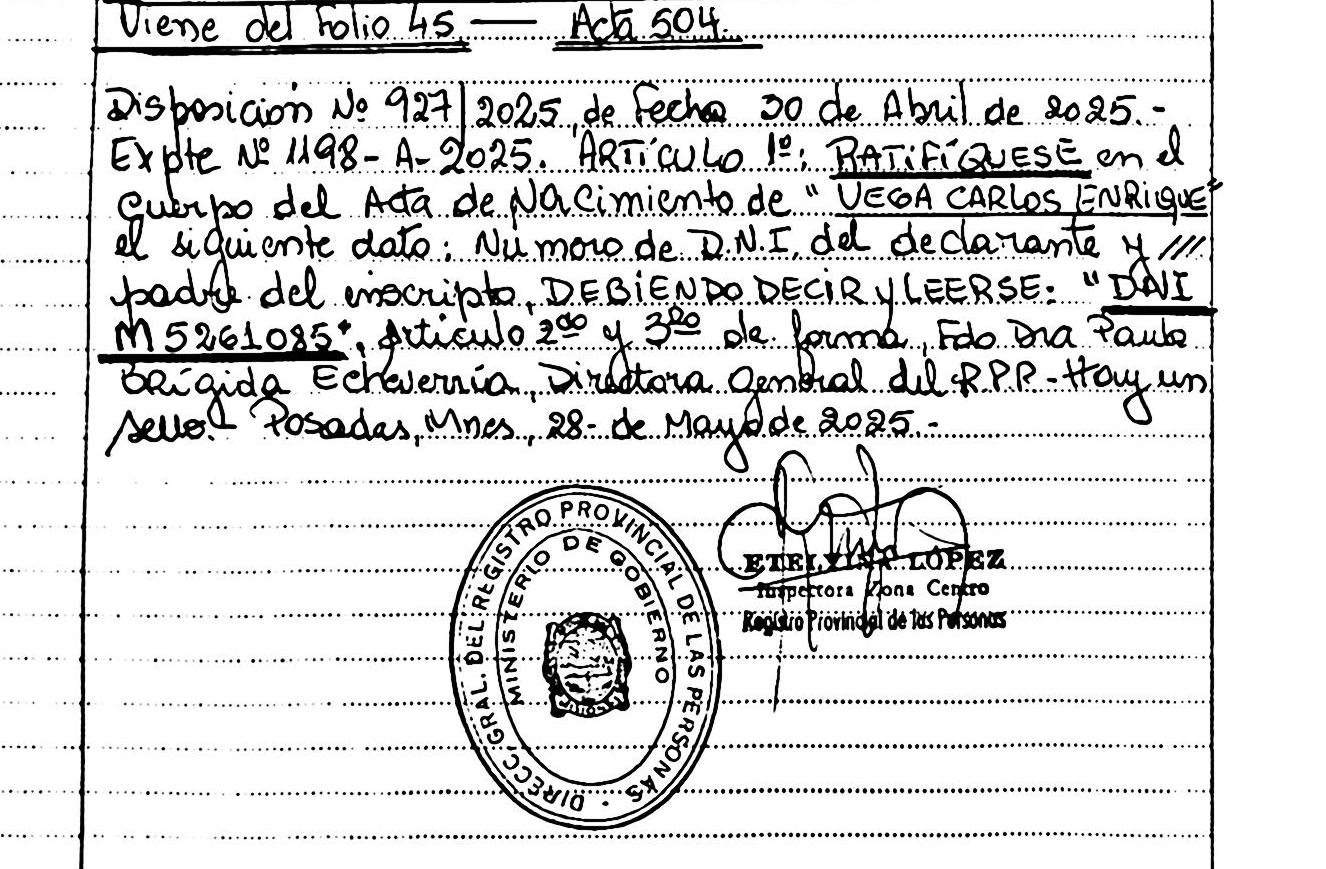 Viene del Folio 45 — Acta 504.
Disposición Nº 927/2025, de Fecha 30 de Abril de 2025.-
Expte Nº 1198-A-2025. ARTÍCULO 1º: RATIFÍQUESE en el
Cuerpo del Acta de Nacimiento de "VEGA CARLOS ENRIQUE"
el siguiente dato: Número de D.N.I. del declarante y ///
padre del inscripto, DEBIENDO DECIR y LEERSE: "DNI
M 5261085", Artículo 2do y 3ro de forma, Fdo Dra Paula
Brígida Echeverría, Directora General del R.P.P.- Hay un
sello.- Posadas, Mnes, 28- de Mayo de 2025.-
DIRECC. GRAL. DEL REGISTRO PROVINCIAL DE LAS PERSONAS ·
MINISTERIO DE GOBIERNO
ETELVINA LOPEZ
Inspectora Zona Centro
Registro Provincial de las Personas